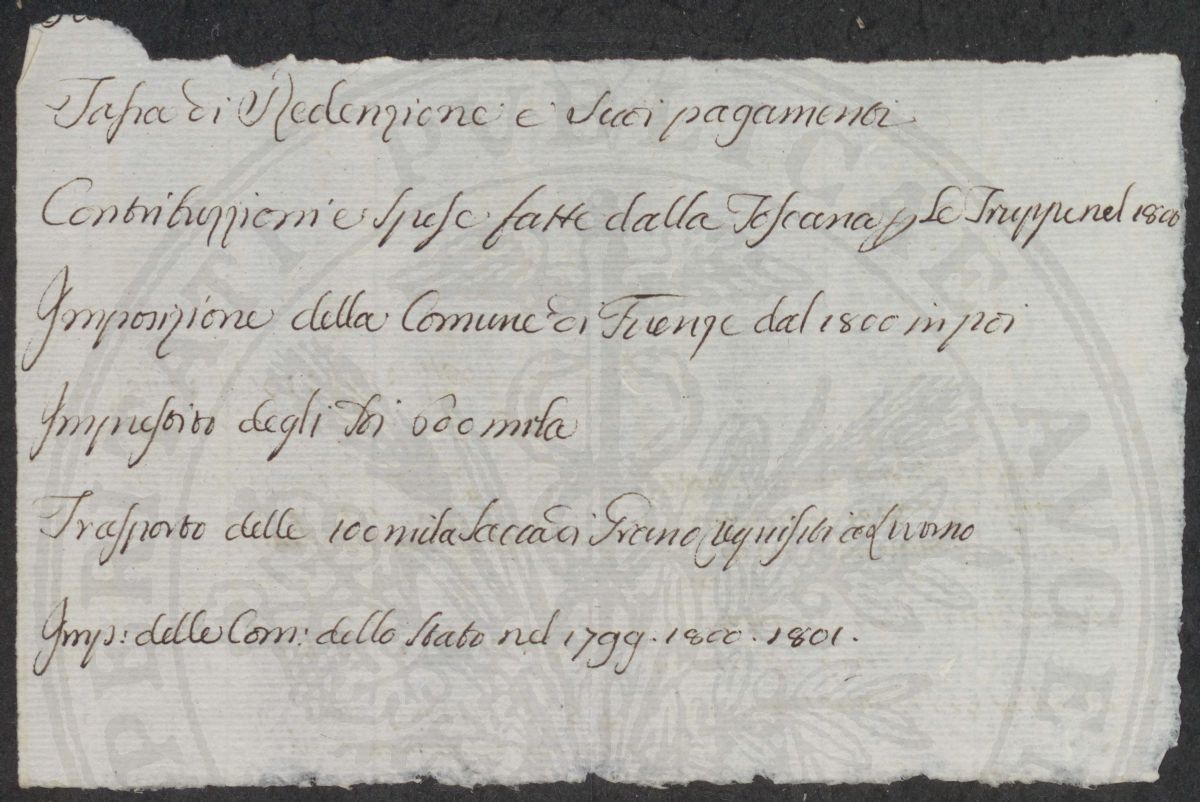 Tassa di Redenzione e Suoi pagamenti
Contribuzzioni e Spese fatte dalla Toscana p Le Truppe nel 1800
Imposizione della Comune di Firenze dal 1800 in poi
Imprestito degli 600 mila
Trasporto delle 100 mila Sacca di Grano requisiti a Livorno
Imp: delle Com: dello Stato nel 1799. 1800. 1801.